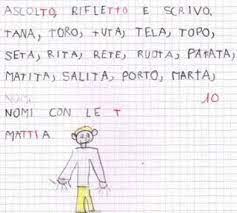 ASCOLTO, RIFLETTO E SCRIVO.
TANA, TORO, TUTA, TELA, TOPO,
SETA, RITA, RETE, RUOTA, PATATA,
MATITA, SALITA, PORTO, MARTA,
NOMI 10
NOMI CON LE T
MATTIA